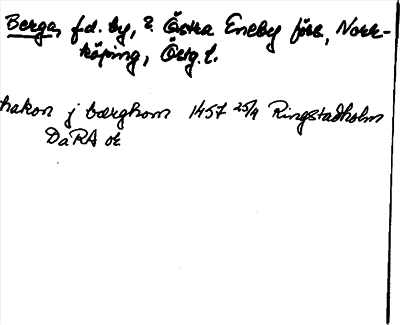 Berga, f.d. by, ? Östra Eneby förs., Norr-
köping, Östg. l.
hakon j bærghom 1457 25/9 Ringstadholm
DaRA or